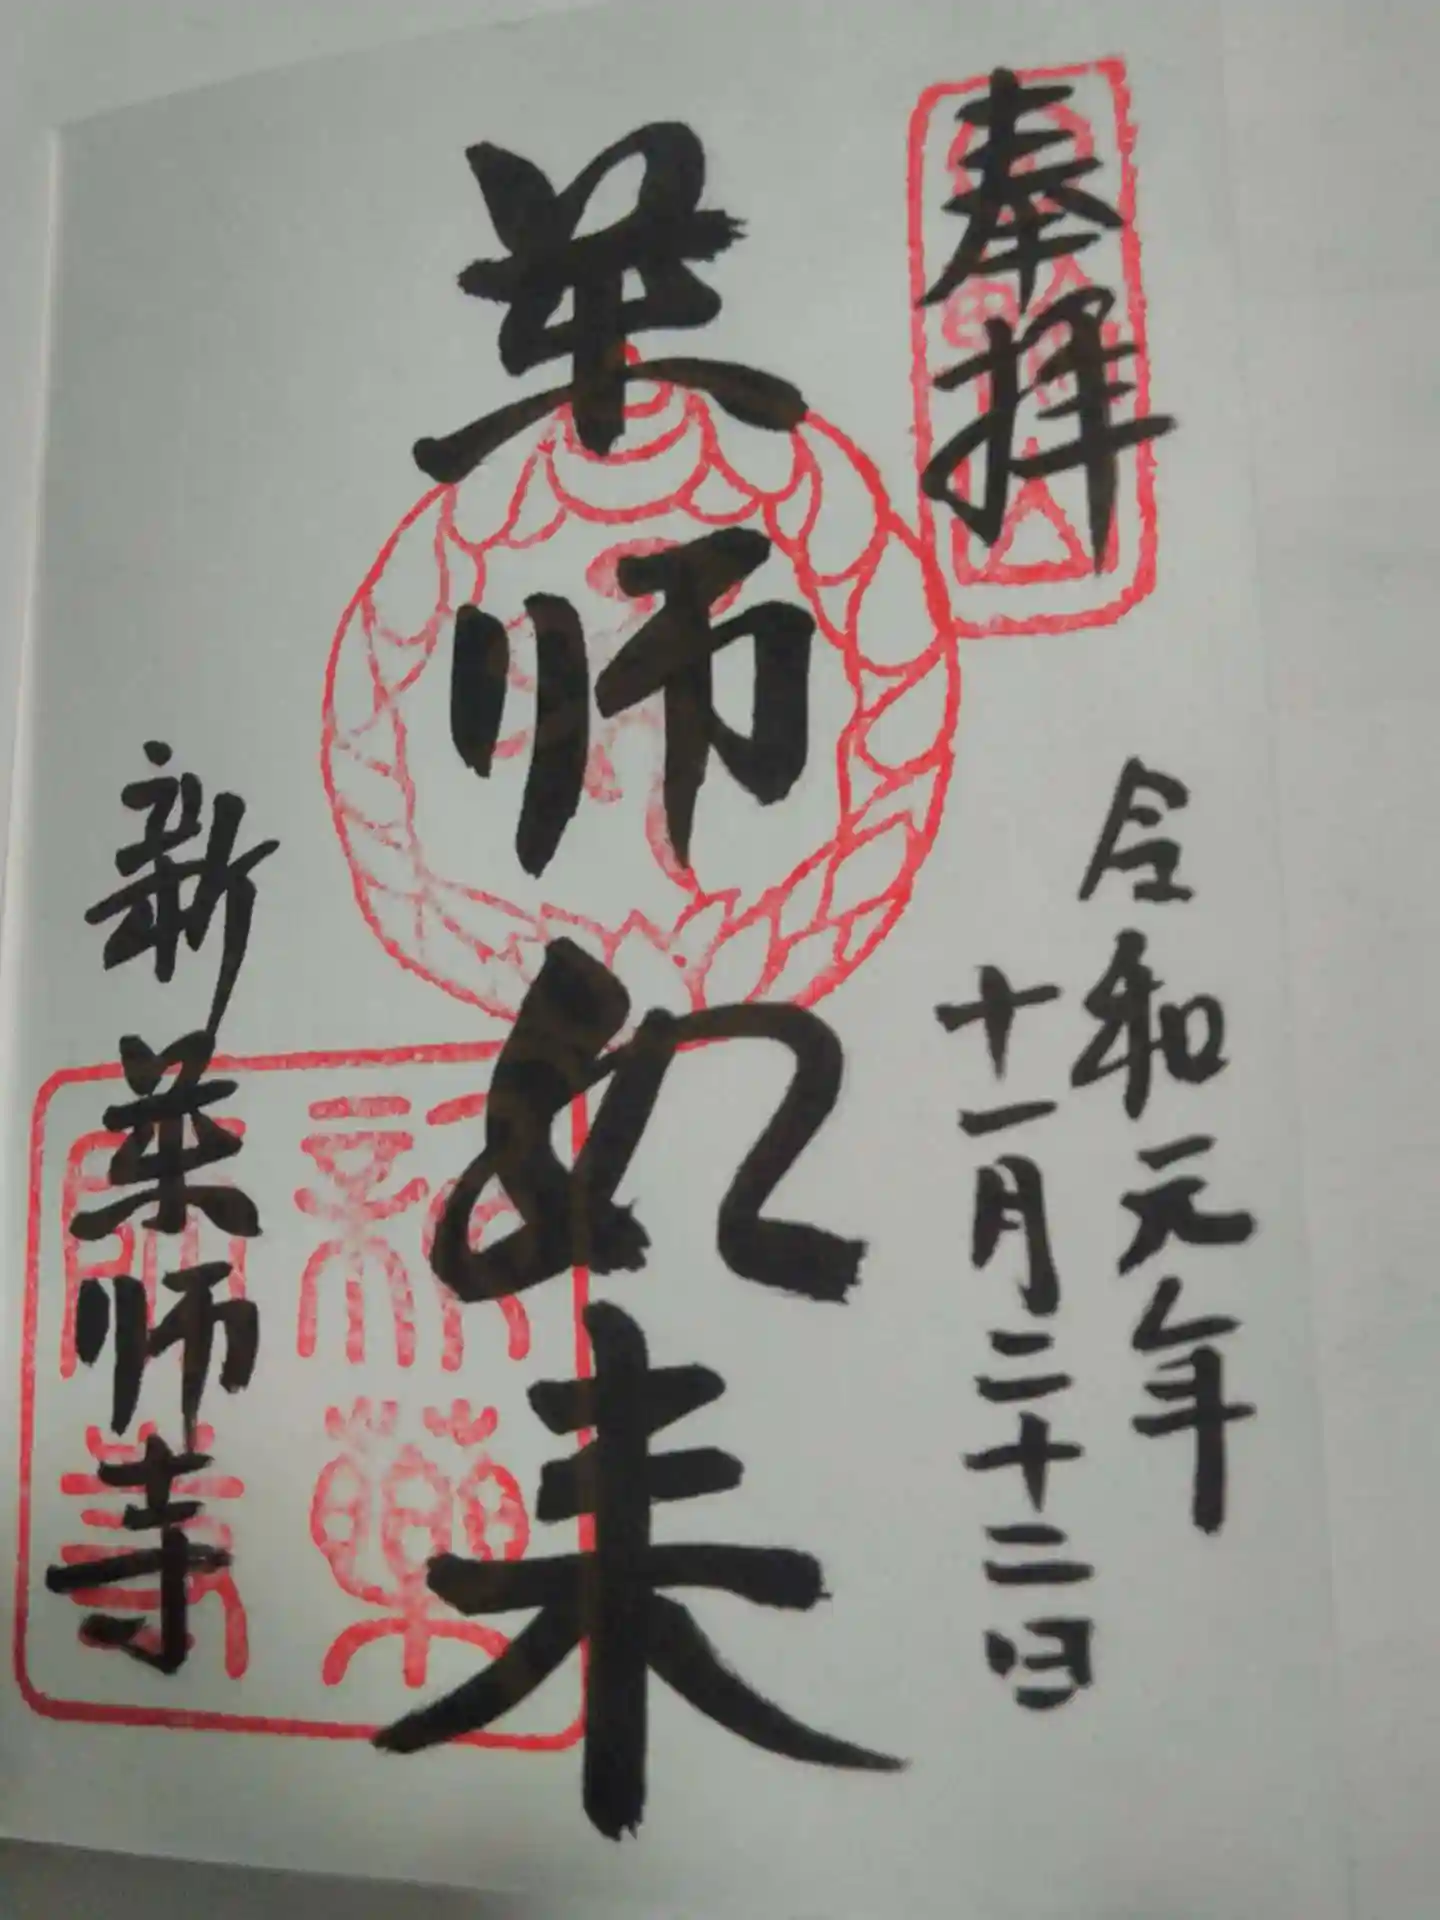 奉拝
令和元年
十一月二十二日
薬師如来
新薬師寺
新薬
師寺